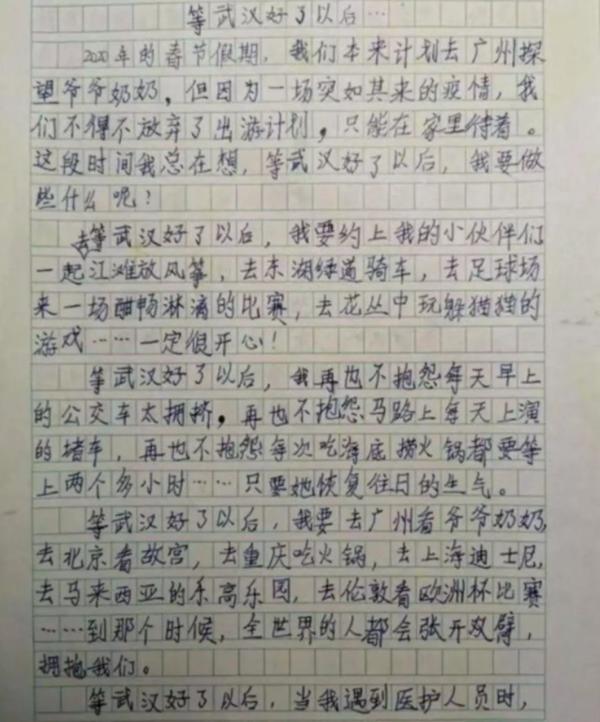 等武汉好了以后…
2020年的春节假期，我们本来计划去广州探
望爷爷奶奶，但因为一场突如其来的疫情，我
们不得不放弃了出游计划，只能在家里待着。
这段时间我总在想，等武汉好了以后，我要做
些什么呢？
等武汉好了以后，我要约上我的小伙伴们
一起去江滩放风筝，去东湖绿道骑车，去足球场
来一场酣畅淋漓的比赛，去花丛中玩躲猫猫的
游戏……一定很开心！
等武汉好了以后，我再也不抱怨每天早上
的公交车太拥挤，再也不抱怨马路上每天上演
的堵车，再也不抱怨每次吃海底捞火锅都要等
上两个多小时……只要她恢复往日的生气。
等武汉好了以后，我要去广州看爷爷奶奶，
去北京看故宫，去重庆吃火锅，去上海迪士尼，
去马来西亚的乐高乐园，去伦敦看欧洲杯比赛
……到那个时候，全世界的人都会张开双臂，
拥抱我们。
等武汉好了以后，当我遇到医护人员时，